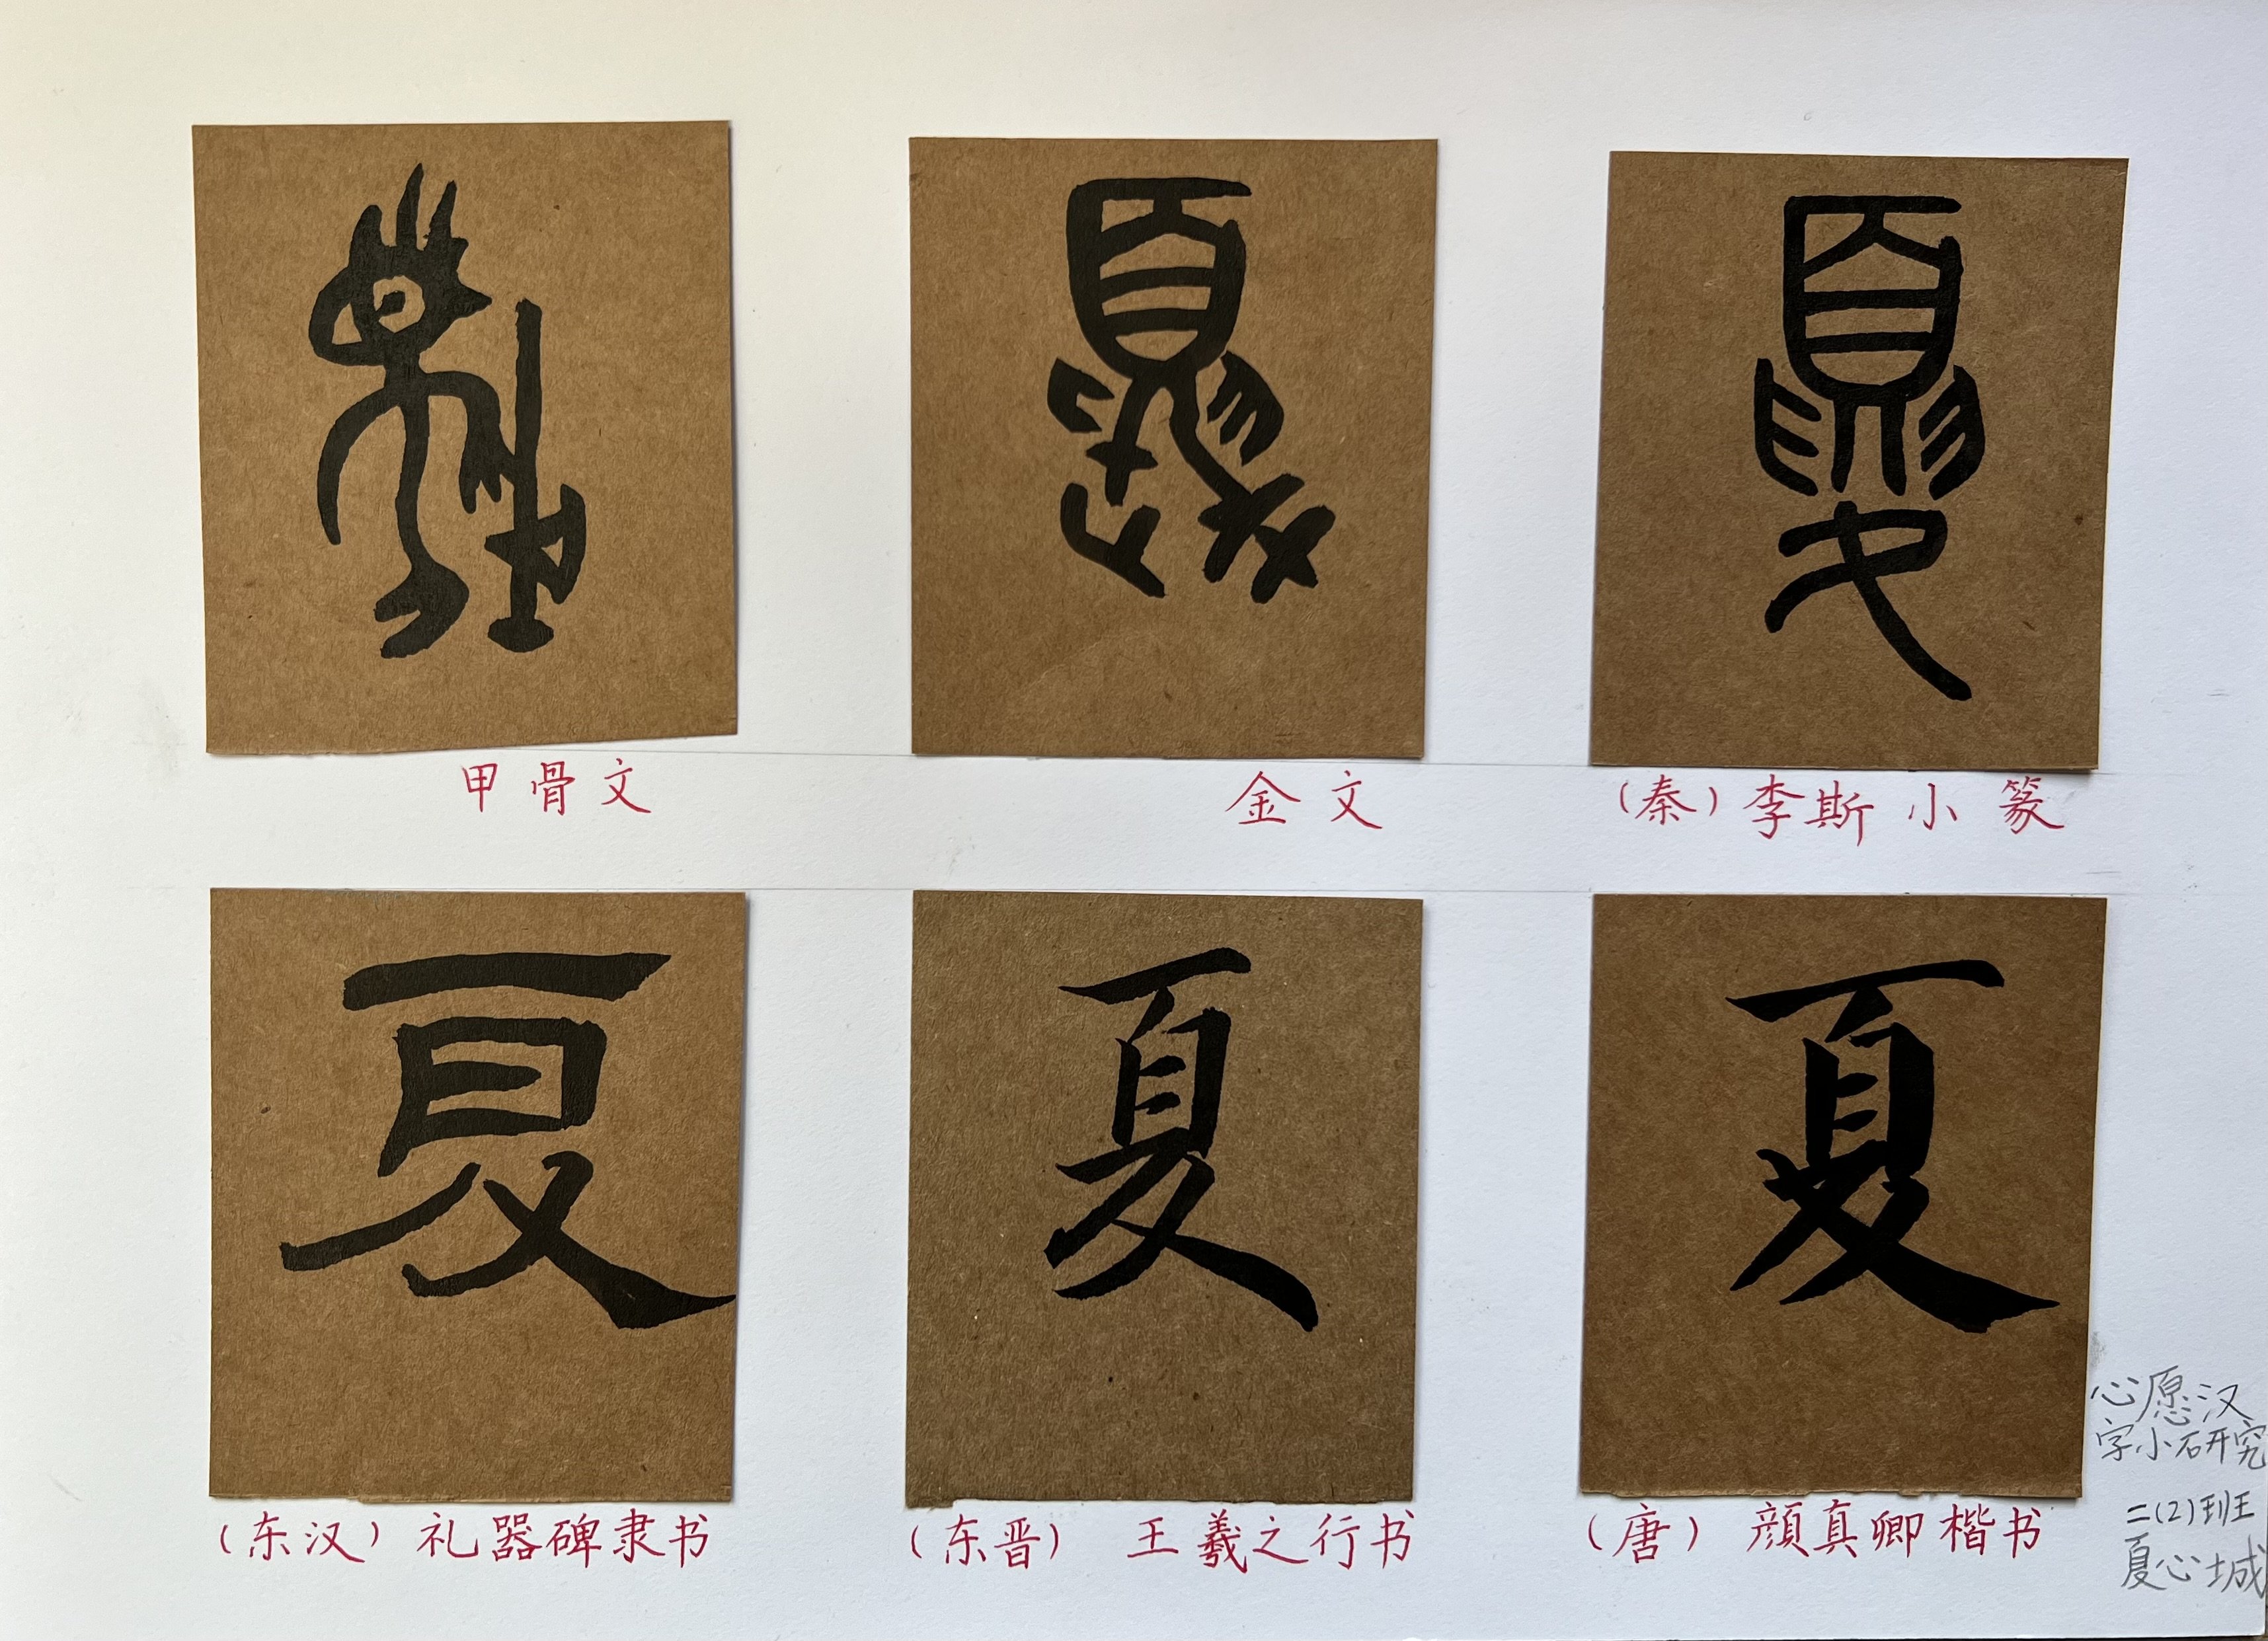 夏 夏 夏
甲骨文 金文 （秦）李斯小篆
夏 夏 夏
（东汉）礼器碑隶书 （东晋） 王羲之行书 （唐） 颜真卿楷书
心愿汉
字小研究
二(2)班
夏心城